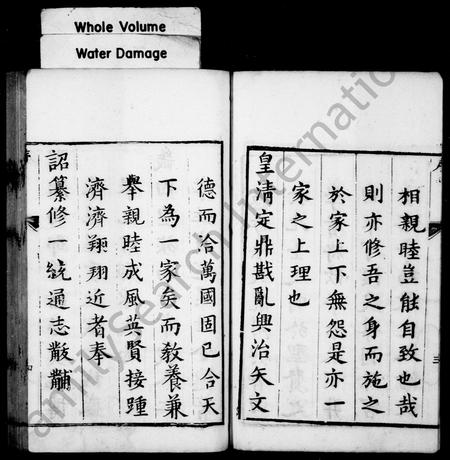 Whole Volume
Water Damage
相親睦豈能自致也哉
則亦修吾之身而施之
於家上下無怨是亦一
家之上理也
皇清定鼎戡亂興治矢文
德而洽萬國固已合天
下為一家矣而敎養兼
舉親睦成風英賢接踵
濟濟翔翔近者奉
詔纂修一統通志黻黼
三
FamilySearch International